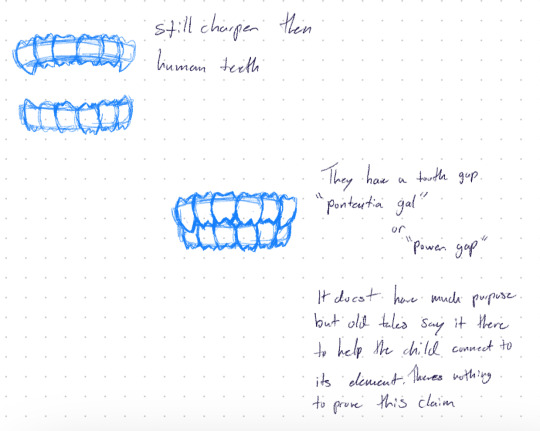 still sharper then
human teeth
They have a tooth gap
"pontentia gal"
or
"power gap"
It doest have much purpose
but old tales say it there
to help the child connect to
its element. Theres nothing
to prove this claim